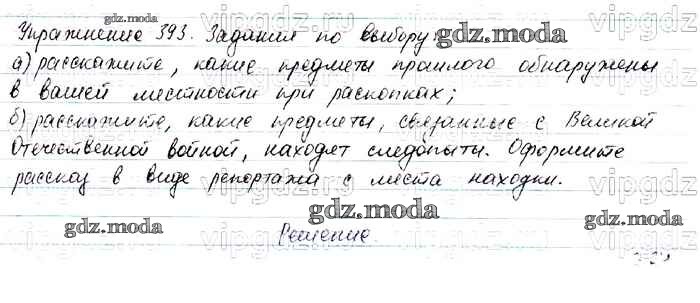 Упражнение 393. Задания по выбору:
а) расскажите, какие предметы прошлого обнаружены
в вашей местности при раскопках;
б) расскажите, какие предметы, связанные с Великой
Отечественной войной, находят следопыты. Оформите
рассказ в виде репортажа с места находки.
Решение.
gdz.moscow
gdz.moscow
gdz.moscow
gdz.moscow
gdz.moscow